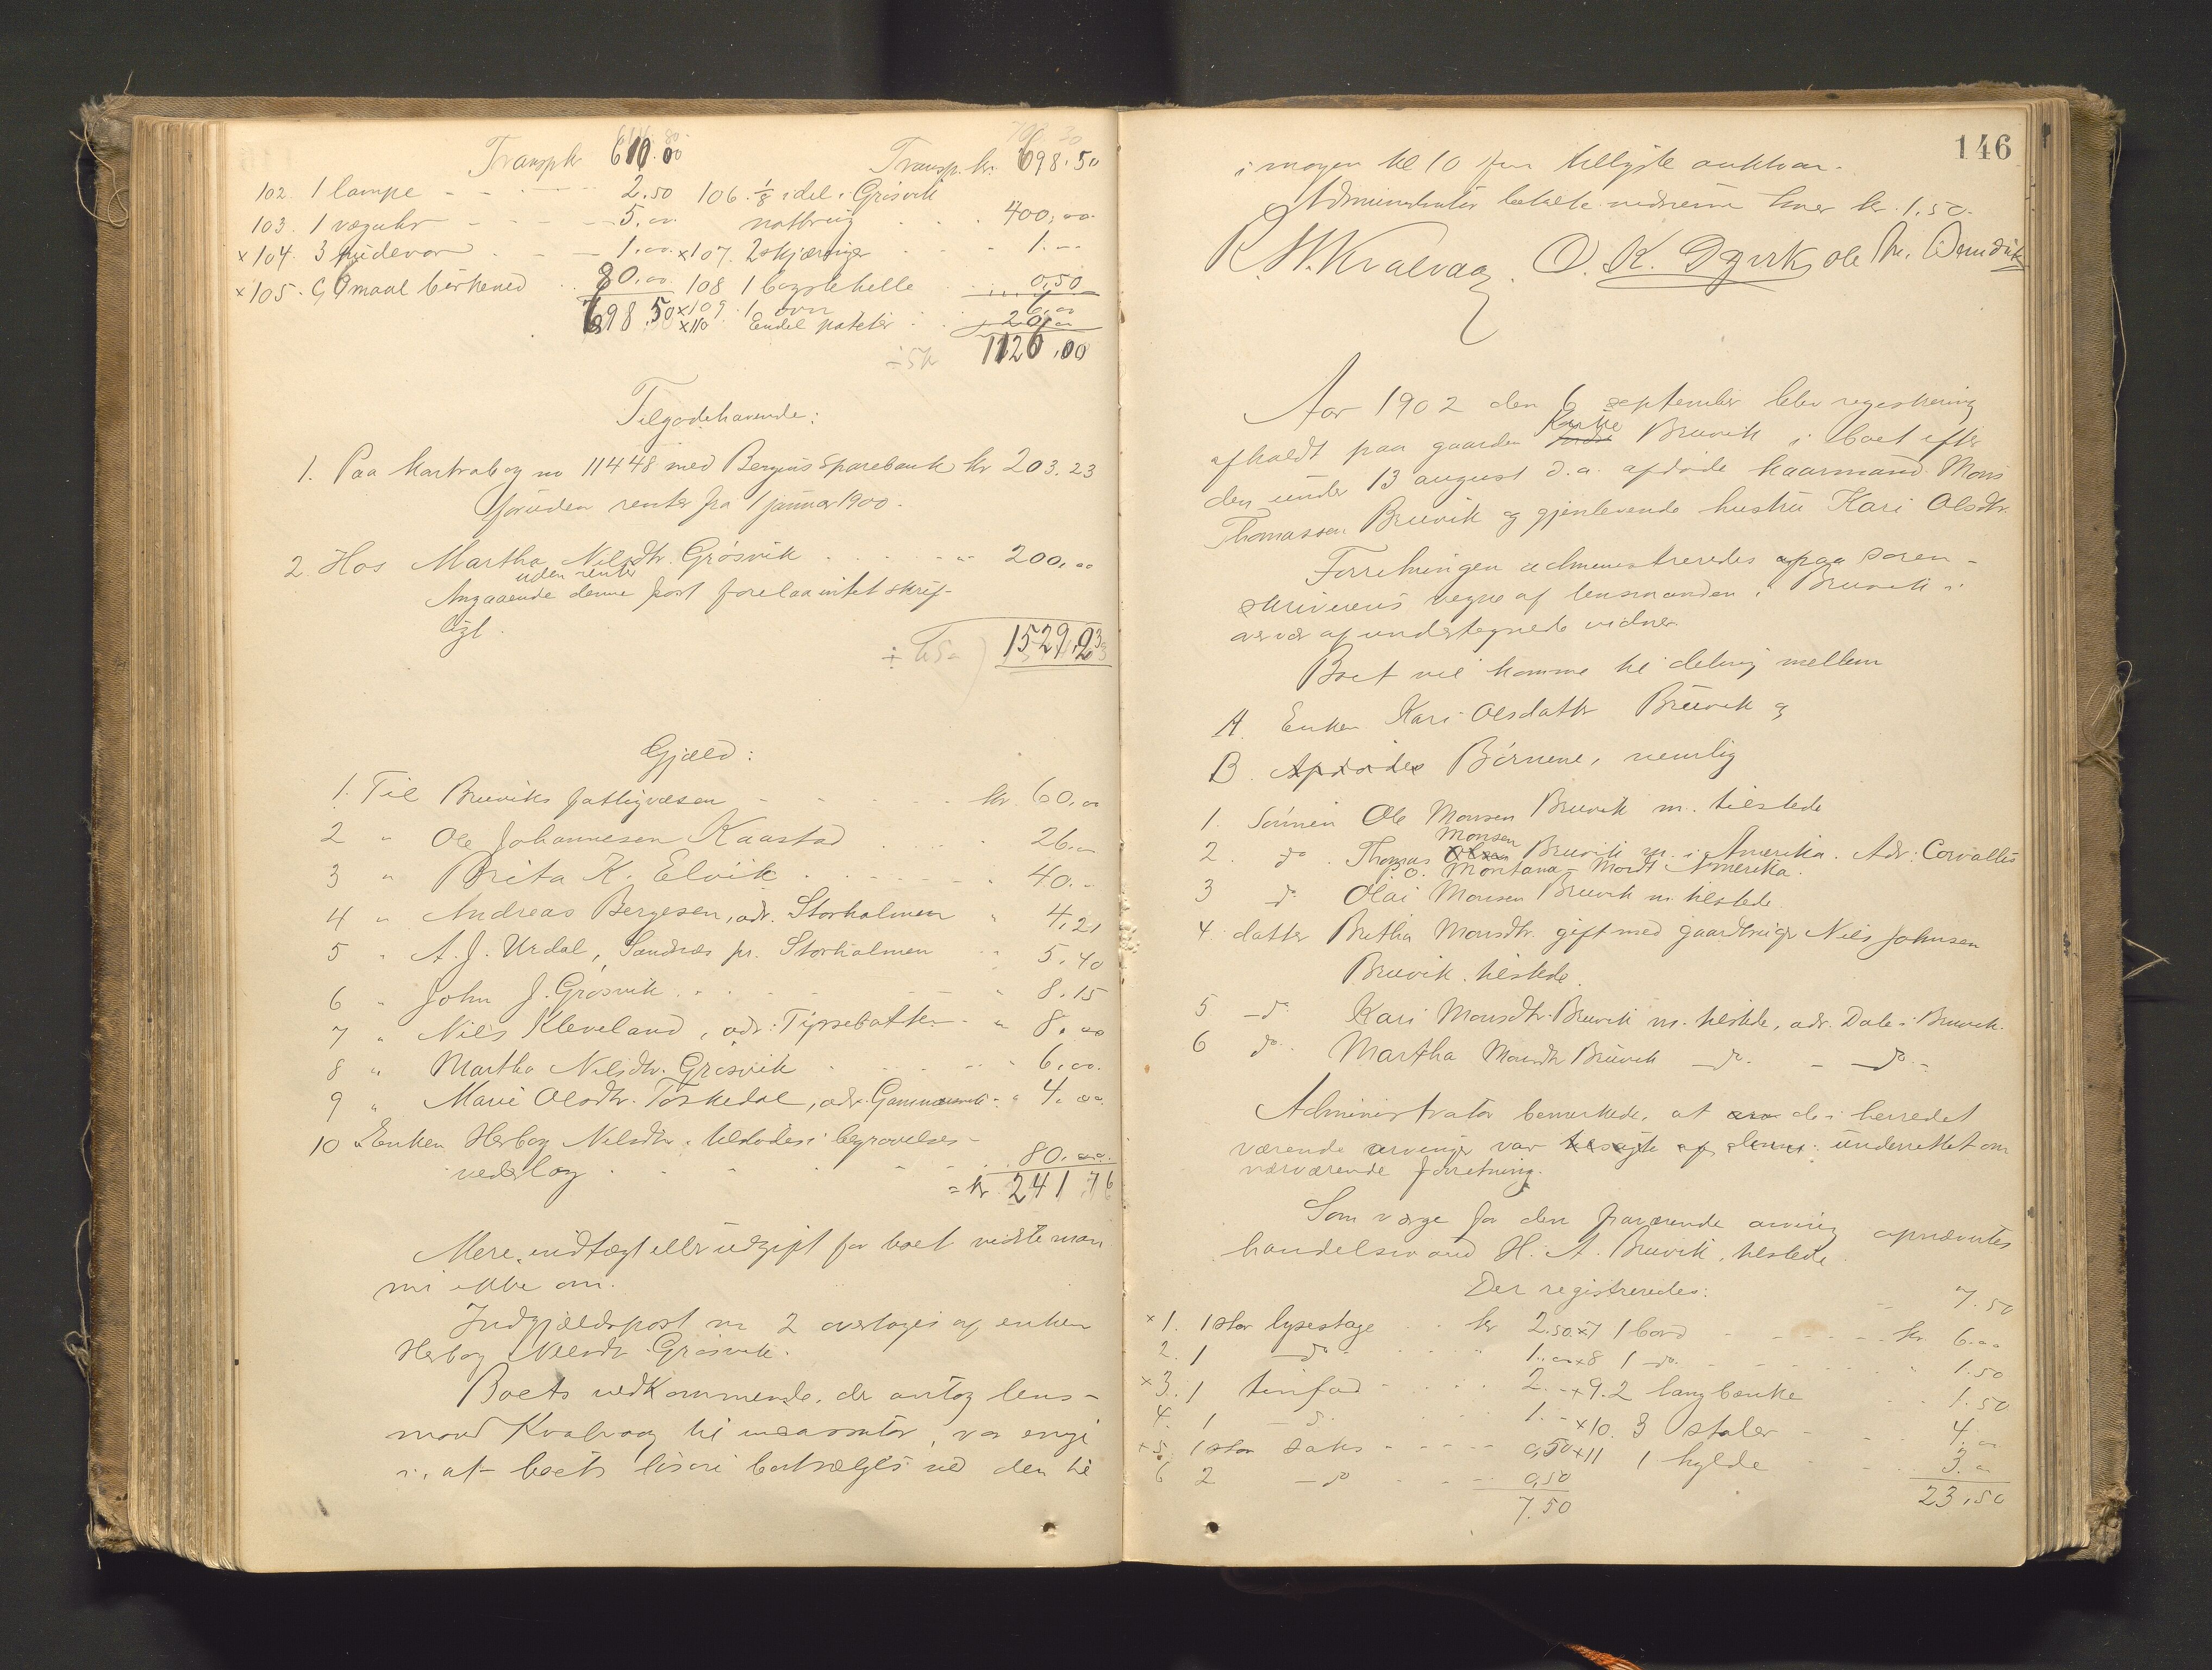 Transp kr 610.00
102. 1 lampe 2.50
103. 1 væguhr 5.00
×104. 3 pudevar 1.00
×105. 9 maal birkeved 80.00
698.50
Transp. kr. 698.50
106. 1/8 idel i Grøsvik
notbrug 400.00
×107. 2 skjæringer 1.-
108 1 bogstehelle 0,50
×109. 1 ovn 6.00
×110 Endel poteter 20.00
1126.00
Tilgodehavende:
1. Paa kontrabog no 11448 med Bergens Sparebank kr 203.23
foruden renter fra 1 januar 1900.
2. Hos Martha Nilsdtr. Grøsvik 200.00
uden renter
Angaaende denne post forelaa intet skrif-
tligt.
1529.23
Gjæld:
1. Til Bruviks fattigvæsen kr. 60.00
2 " Ole Johannesen Kaastad 26.-
3 " Brita K. Elvik 40.-
4 " Andreas Bergesen, adr. Storholmen " 4,21
5 " A. J. Urdal, Sandnes pr. Storholmen 5.40
6 " John J. Grøsvik 8.15
7 " Nils Kleveland, adr: Tyssebotten " 8.00
8 " Martha Nilsdtr. Grøsvik 6.00
9 " Mari Olsdtr. Toskedal, adr. Gammersvik " 4.00
10 Enken Herborg Nilsdtr. tilstodes i begravelses-
vederlag 80.00
= kr. 241.76
Mere indtægt eller udgift for boet vidste man
nu ikke om.
Indgjældspost no 2 overtoges af enken
Herborg Nilsdtr. Grøsvik.
Boets vedkommende, der antog lens-
mand Kvalvaag til incassator, var enige
i, at boets løsøre bortsælges ved den til
146
i morgen kl 10 fm tillyste auktion.
Administrator betalte vidnerne hver kr. 1.50.
R. H. Kvalvaag. O. K. Dyvik, Ole
Aar 1902 den 6 september blev registrering
afholdt paa gaarden Bruvik i boet efter
den under 13 august d.a. afdøde kaarmand Mons
Thomassen Bruvik og gjenlevende hustru Kari Olsdtr.
Forretningen administreredes paa soren-
skriverens vegne af lensmanden i Bruvik i
overvær af undertegnede vidner.
Boet vil komme til deling mellem
A. Enken Kari Olsdatter Bruvik og
B. Afdødes Børnene, nemlig
1. Sønnen Ole Monsen Bruvik m. tilstede
2. do. Thomas Olsen Monsen Bruvik m. i Amerika. Adr: Corvallis
P.O. Montana Nordt Amerika.
3 do Olai Monsen Bruvik m. tilstede.
4. datter Brita Monsdtr. gift med gaardbruger Nils Johnsen
Bruvik. tilstede.
5 do Kari Monsdtr. Bruvik m. tilstede, adr. Dale i Bruvik.
6 do. Martha Monsdtr Bruvik do. - do -
Administrator bemerkede, at de i herredet
værende arvinger var tilsagte af denne underrettet om
nærværende forretning.
Som værge for den fraværende arving opnævntes
handelsmand H. A. Bruvik, tilstede.
Der registreredes:
×1. 1 stor lysestage kr 2.50
2. 1 do 1.00
×3. 1 tinfad 2.-
4. 1 do 1.-
×5. 1 stor saks 0,50
6 2 do 0,50
7.50
7.50
×7 1 bord kr. 6.00
×8 1 do. 1.50
×9. 2 langbænke 1.50
×10. 3 stoler 4.00
×11 1 hylde 3.00
23.50